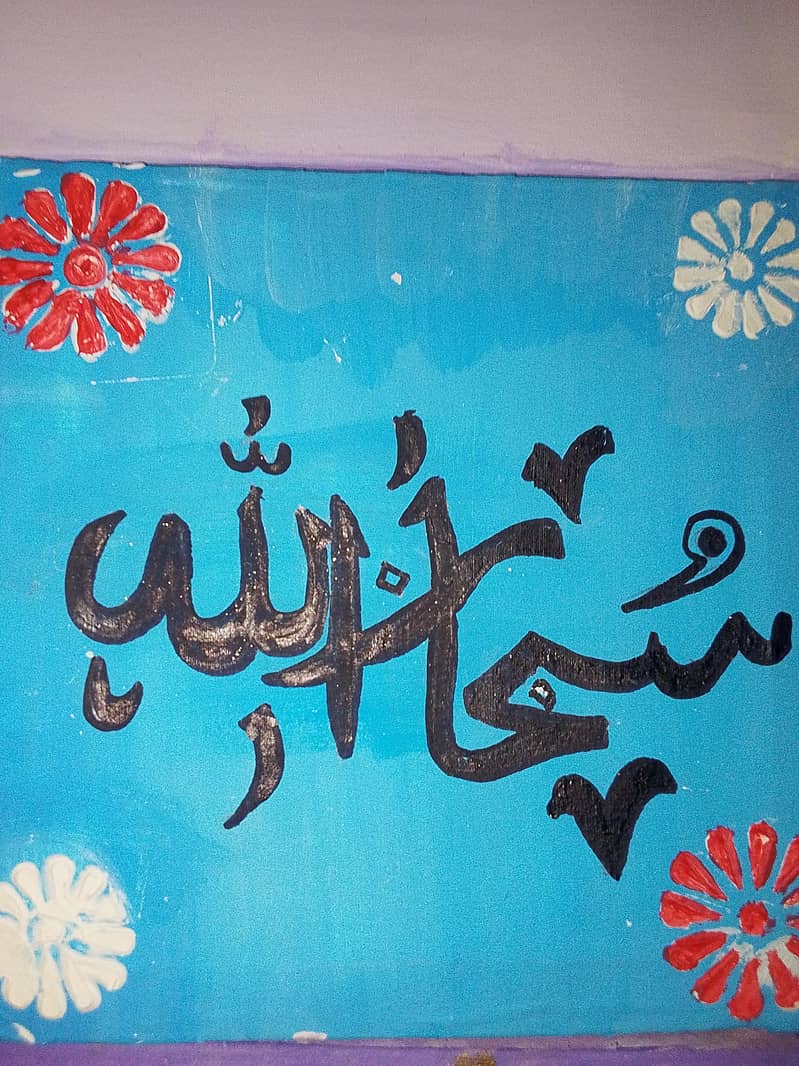 سُبحَانَ اللّٰهِ